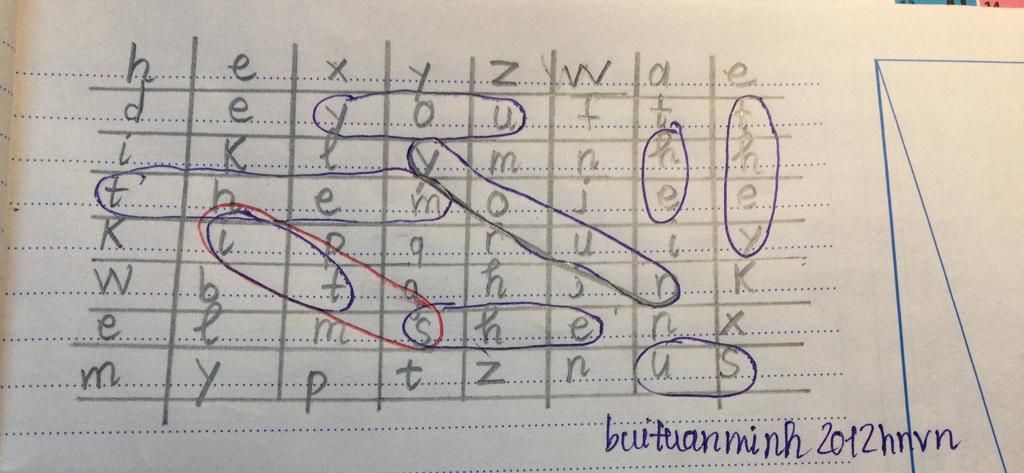 h e x y z w a e
d e y o u f t t
i k l y m n h h
t h e m o j e e
k i p q r u i y
w b t a h j r k
e l m s h e n x
m y p t z n u s
buituanminh 2012hnvn